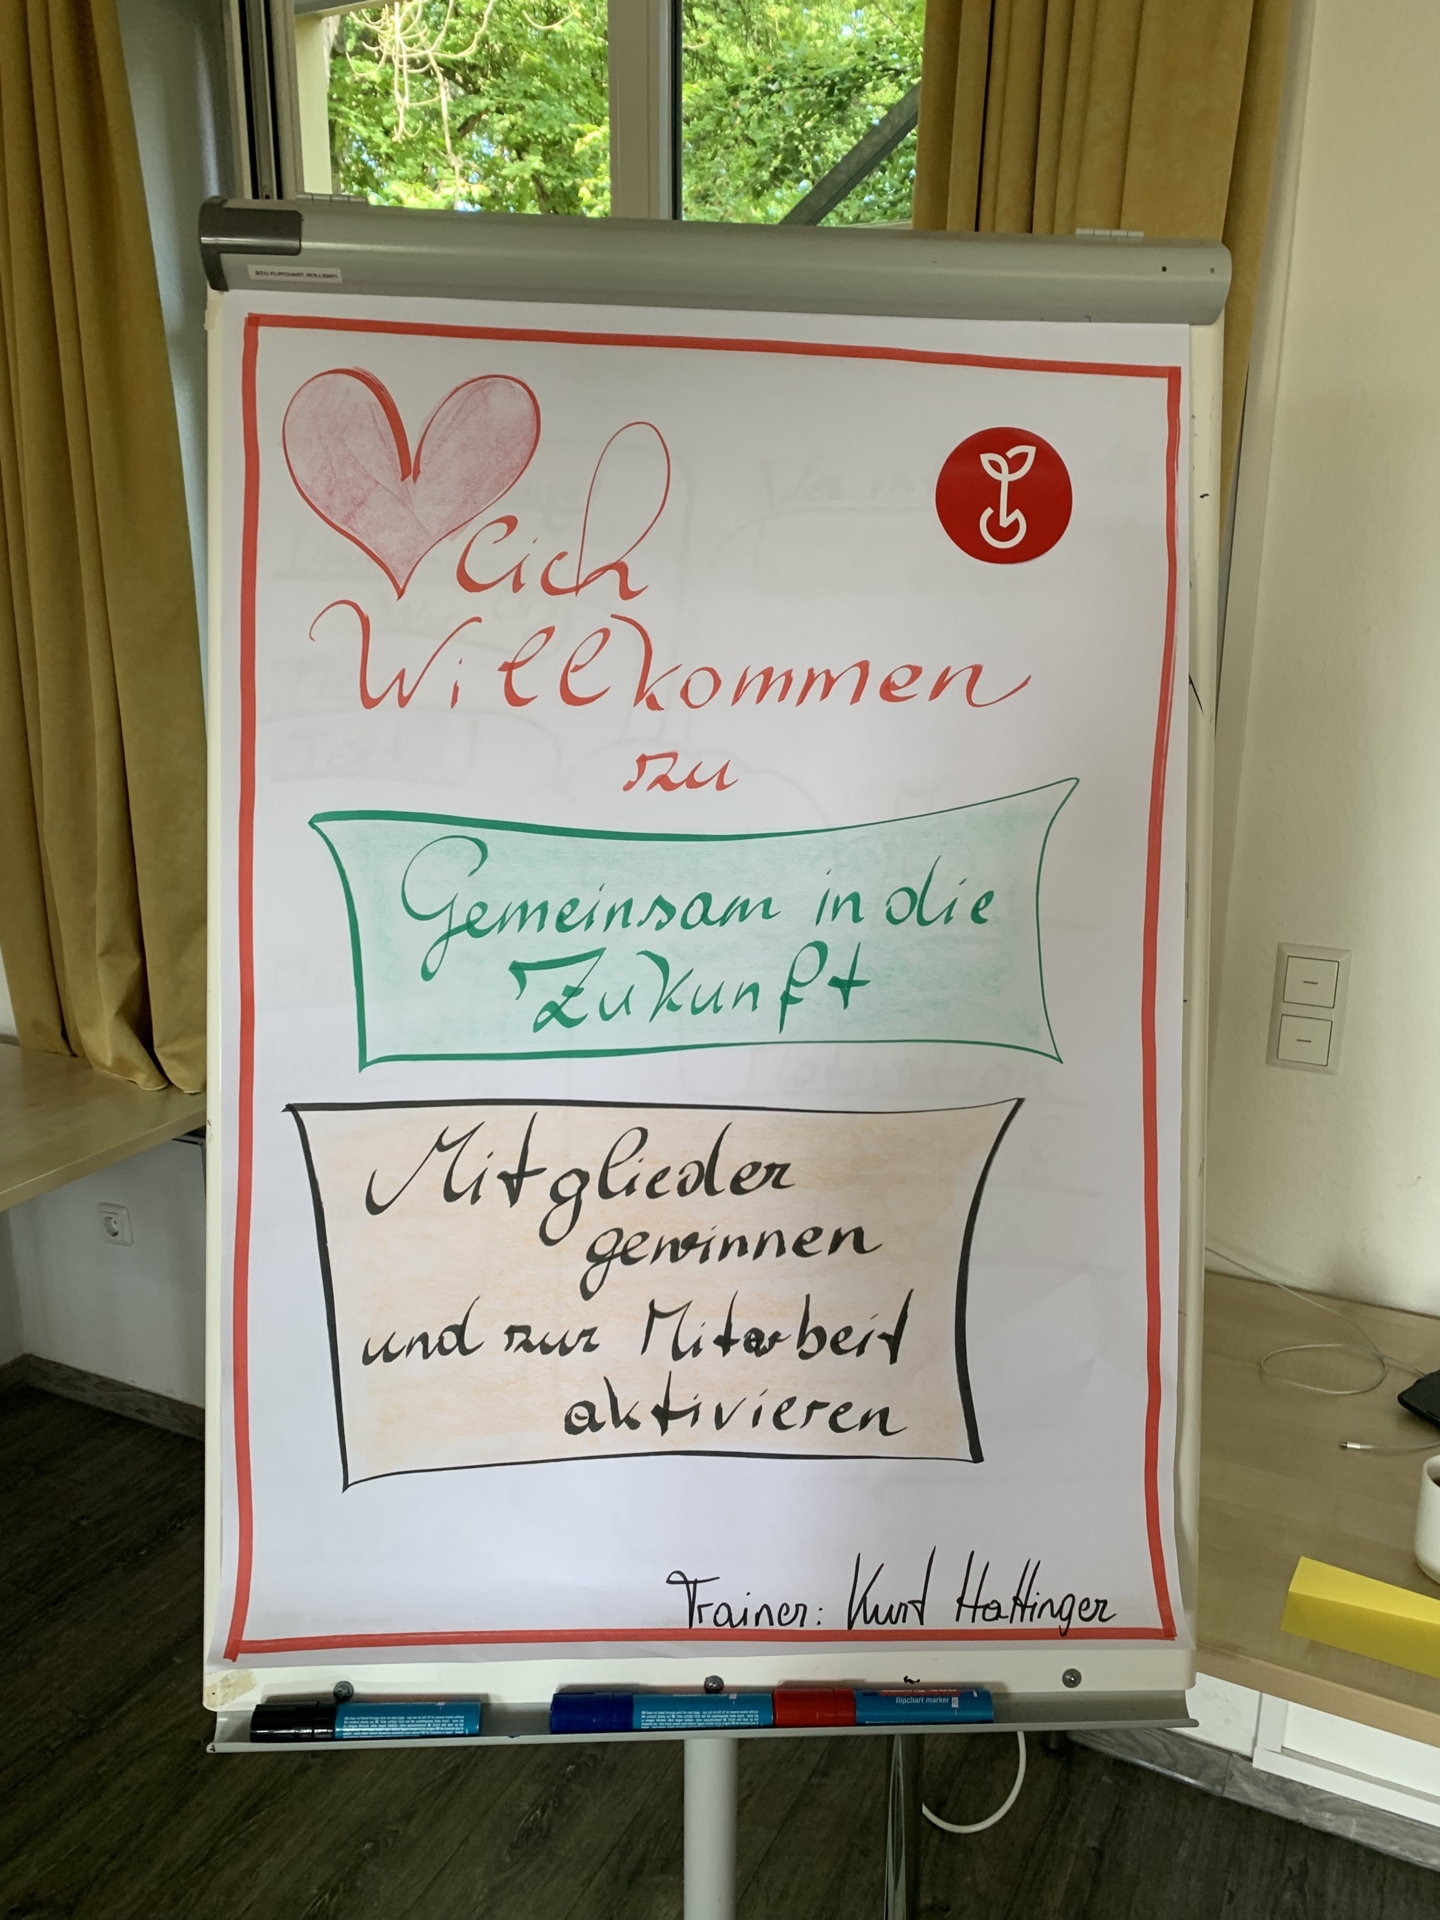 lich
Willkommen
zu
Gemeinsam in die
Zukunft
Mitglieder
gewinnen
und zur Mitarbeit
aktivieren
Trainer: Kurt Hattinger
flipchart marker